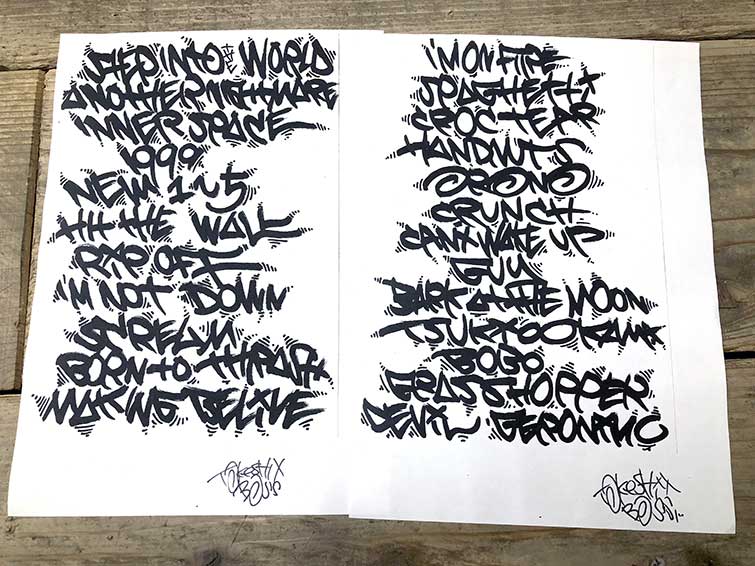 SHED INTO THE WORLD
ANOTHER NIGHTMARE
INNER SPACE
1999
NEW 1~5
HI THE WALL
RIP OFF
I'M NOT DOWN
BORN TO THRASH
MAKING BELIVE
TAKESHIX
I'M ON FIRE
SPAGHETTI
CROC TEAR
HANDNUTS
ORONO
CRUNCH
CAN'T WAKE UP
GUU
BARK AT THE MOON
TSUKIOOKAMI
BOGO
GRASSHOPPER
DEVIL GERONIMO